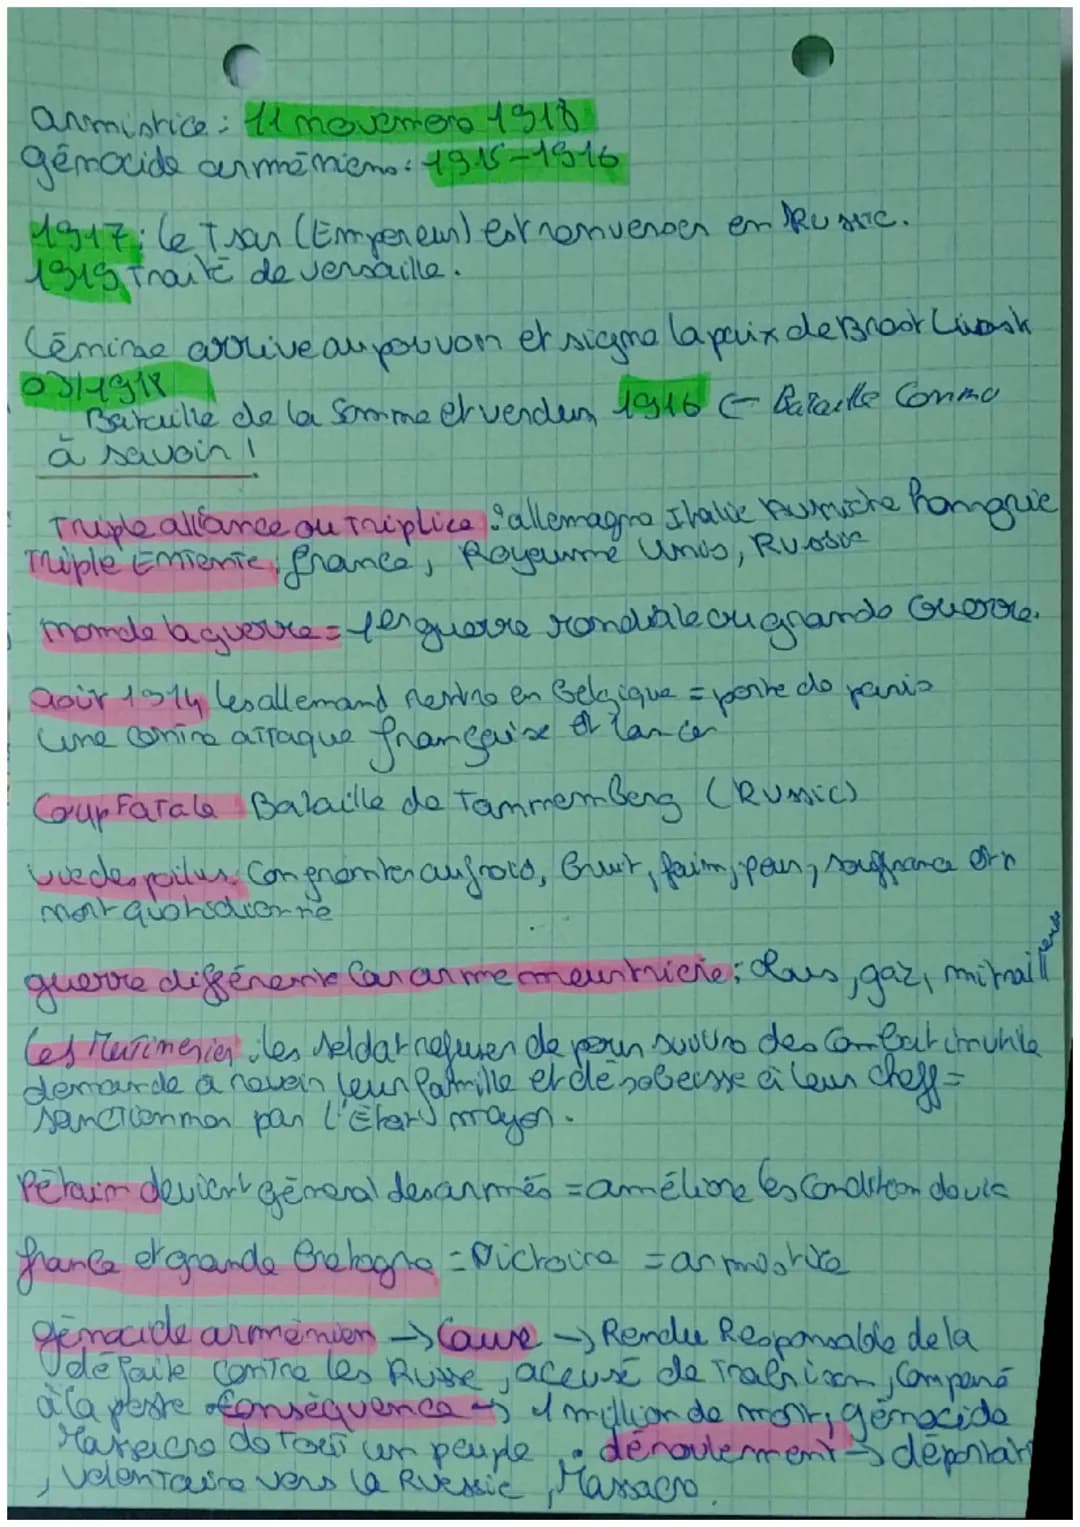 armistice : 11 novembre 1918
génocide arméniens : 1915-1916
1917 : le Tsar (Empereur) est renverser en Russie.
1919 Traité de versaille.
Lénine arrive au pouvoir et signe la paix de Brest Litovsk
03/1918
Bataille de la Somme et verdun 1916 ← Bataille
à savoir !
Triple alliance ou Triplice : allemagne Italie Autriche hongrie
Triple Entente : france, Royaume Unis, Russie
nom de la guerre = 1er guerre mondiale ou grande Guerre.
août 1914 les allemand rentre en Belgique = porte de paris
une contre attaque française et lancer
Coup Fatale Bataille de Tannemberg (Russie)
vie des poilus : Confronter au froid, bruit, faim, peur, souffrance et
mort quotidienne
guerre différente Car arme meurtrière : obus, gaz, mitrailleuse
Les Mutineries : les soldat refuser de poursuivre des Combat inutile
demande a revoir leur famille et désobeisse à leur cheff =
sanctionner par l'État major.
Pétain devient général des armés = améliore les Condition de vie
france et grande Bretagne = Victoire = armistice
génocide arménien → Cause → Rendu Responsable de la
défaite contre les Russe, accusé de Trahison, Comparé
à la peste Conséquence → 1 million de mort, génocide
Massacre de tout un peuple . déroulement → déportation
, volontaire vers la Russie, Massacre.